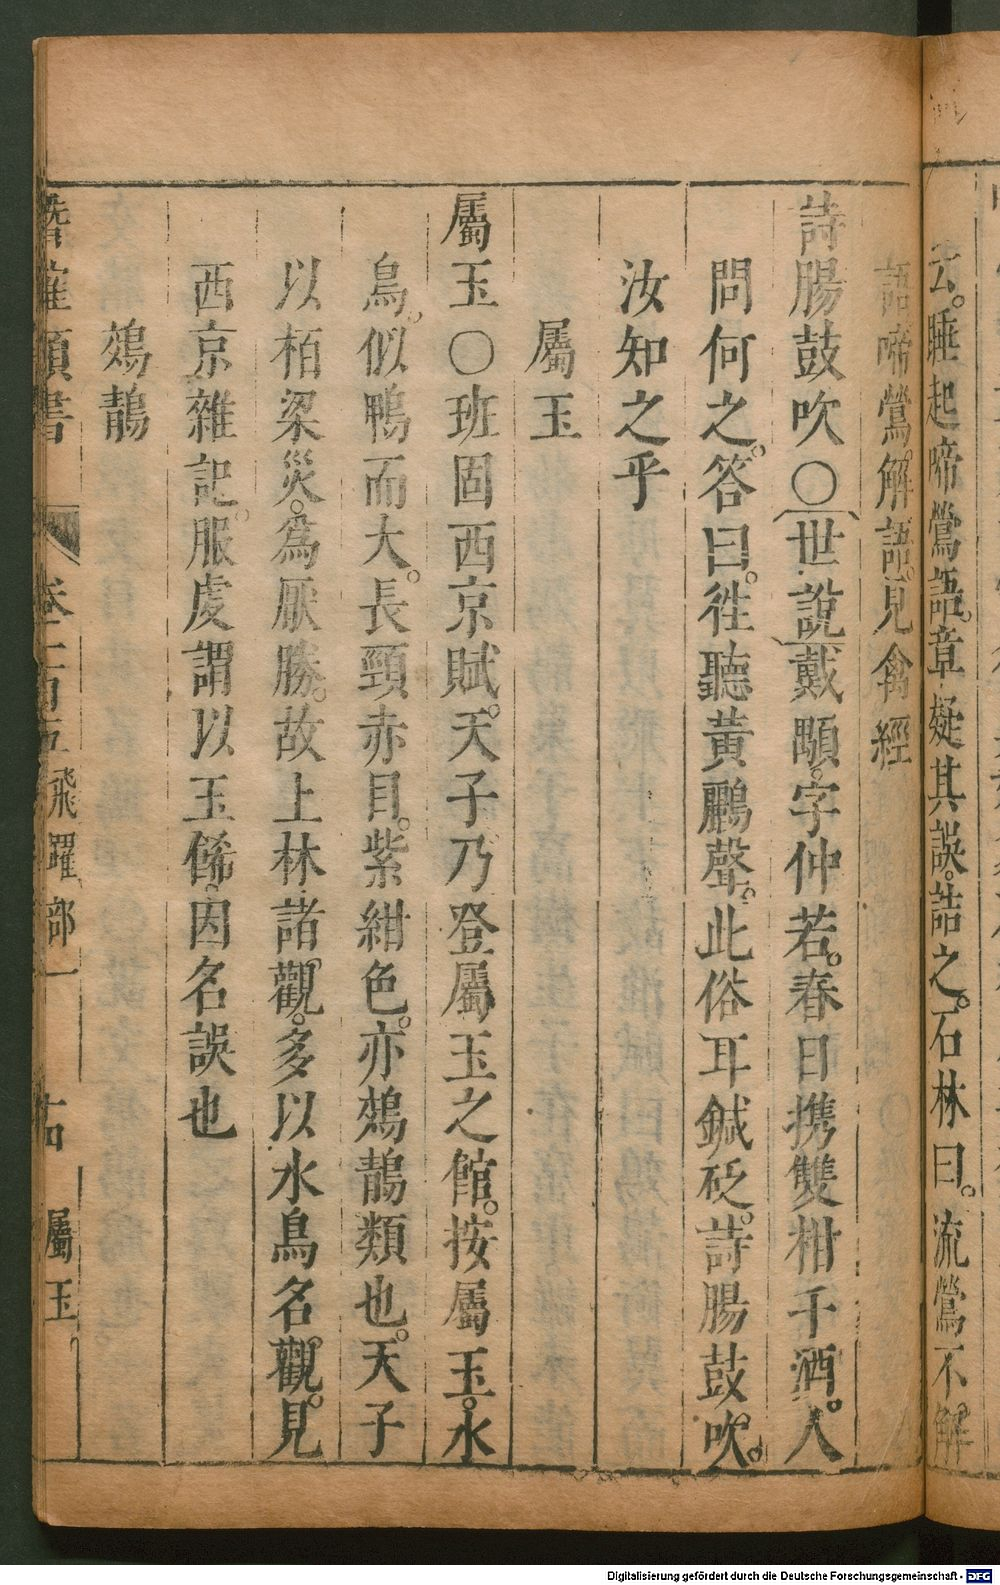 云。睡起啼鶯語。章疑其誤。詰之。石林曰。流鶯不解
語啼鶯。解語。見禽經
詩腸鼓吹○世說戴顒。字仲若。春日携雙柑千酒。人
問何之。答曰。徃聽黃鸝聲。此俗耳鍼砭。詩腸鼓吹。
汝知之乎
屬玉
屬玉○班固西京賦。天子乃登屬玉之館。按屬玉。水
鳥。似鴨而大。長頸赤目。紫紺色。亦鵁鶄類也。天子
以栢梁災。爲厭勝。故上林諸觀。多以水鳥名觀。見
西京雜記。服虔謂以玉俙。因名誤也
鵁鶄
潛確類書 卷一百五 飛躍部一 十四 屬玉
Digitalisierung gefördert durch die Deutsche Forschungsgemeinschaft - DFG